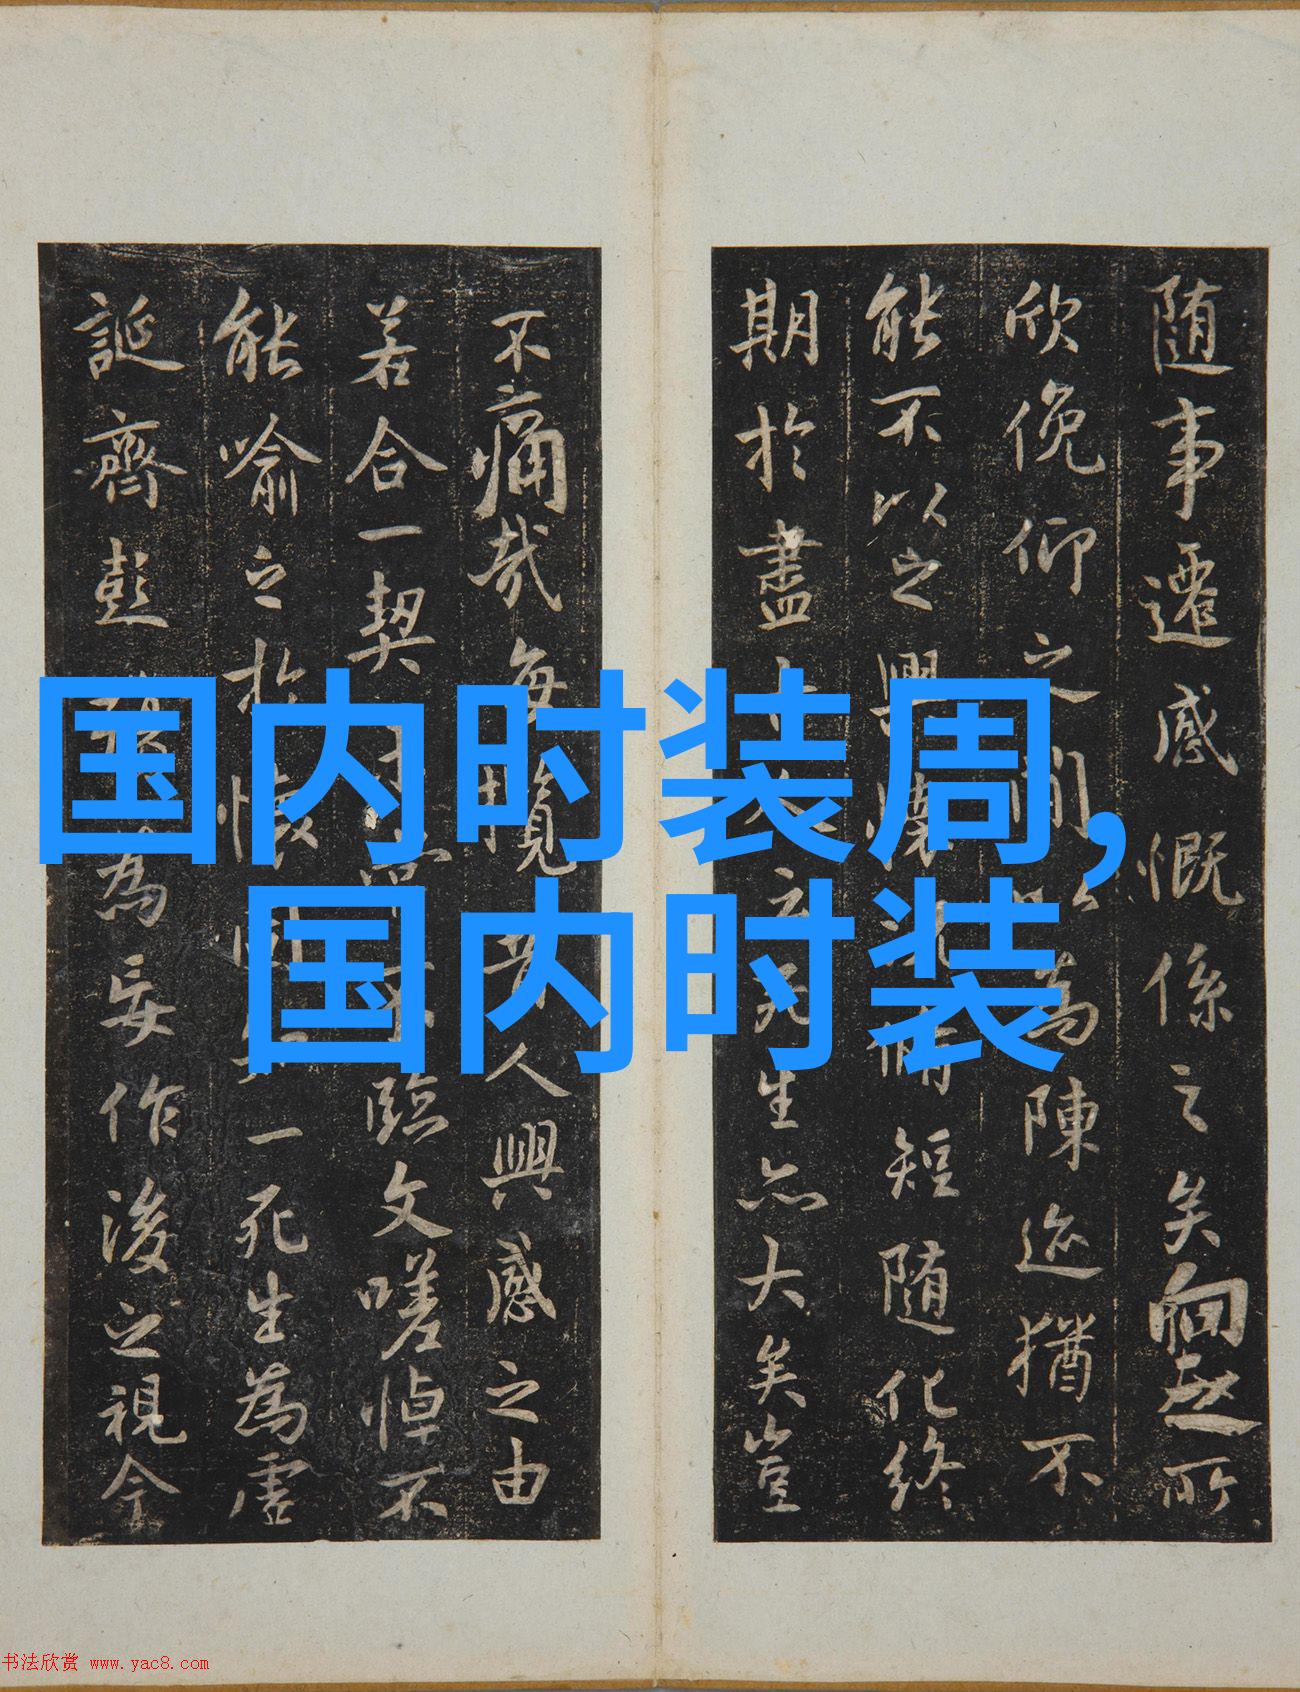 随事遷感慨係之矣向之所
欣俛仰之間為陳迹猶不
能不以之興懷况脩短随化終
期於盡死生亦大矣豈
不痛哉每攬昔人興感之由
若合一契臨文嗟悼不
能喻之於懷固一死生為虛
誕齊彭為妄作後之視今
国内时装周,
国内时装
书法欣赏 www.yac8.com